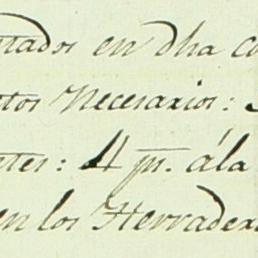 tados en dha co
tos Necesarios:
etes: 4 pr. ála
en los Herrader